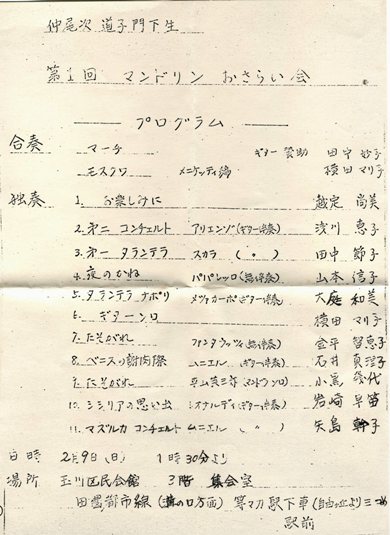 仲尾次 道子門下生
第1回 マンドリン おさらい会
プログラム
合奏 マーチ ギター賛助 田中 妙子
モスクワ メニケッティ編 横田 マリ子
独奏 1. お楽しみに 越定 尚美
2. 第二 コンチェルト アリエンゾ(ギター伴奏) 浅川 恵子
3. 第一 タランテラ スカラ ( 〃 ) 田中 節子
4. 夜のかね パパレッロ(無伴奏) 山本 信子
5. タランテラ ナポリ メツァカーポ(ギター伴奏) 大庭 和美
6. ギターソロ 横田 マリ子
7. たそがれ ファンタウッツィ(無伴奏) 金平 智恵子
8. ベニスの謝肉祭 ムニエル (ギター伴奏) 石井 真澄子
9. たそがれ 平山英三郎(マンドソロ) 小 代
10. シシリアの思い出 レオナルディ(ギター伴奏) 岩崎 早苗
11. マズルカ コンチェルト ムニエル ( 〃 ) 矢島 幹子
日時 2月9日(日) 1時30分より
場所 玉川区民会館 3階 集会室
田園都市線 (溝の口方面) 等々力駅下車(自由ヶ丘より三つめ)
駅前